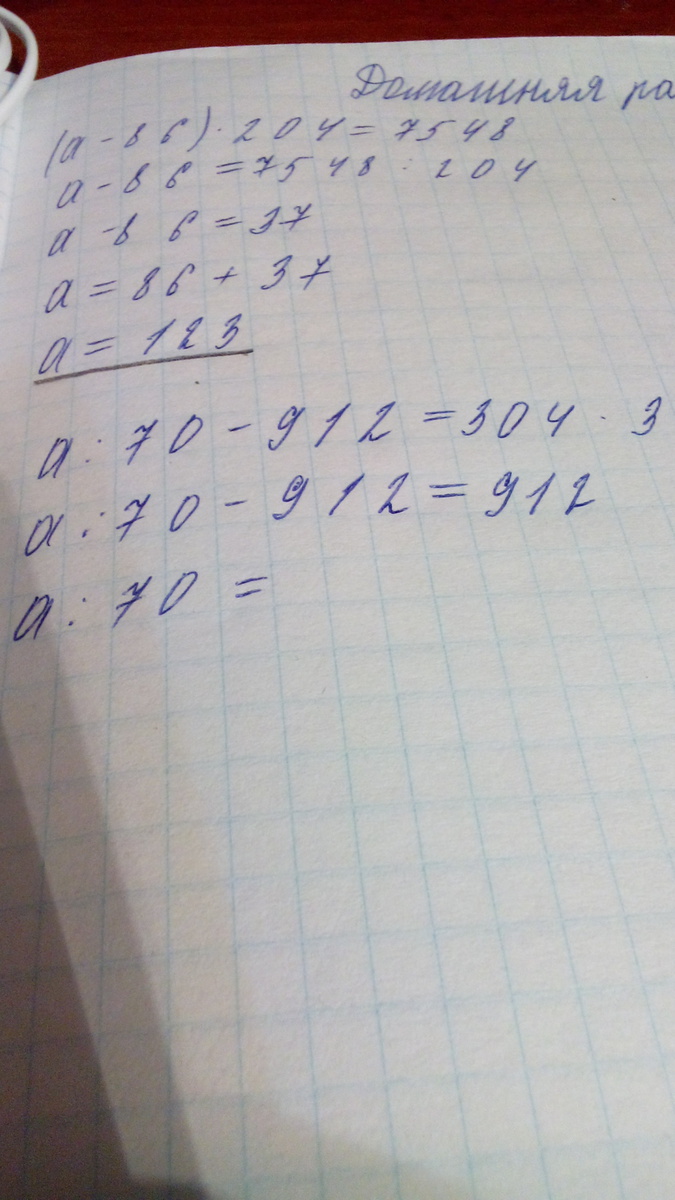 Домашняя ра
(а-86)·204=7548
а-86=7548:204
а-86=37
а=86+37
а=123
а:70-912=304·3
а:70-912=912
а:70=